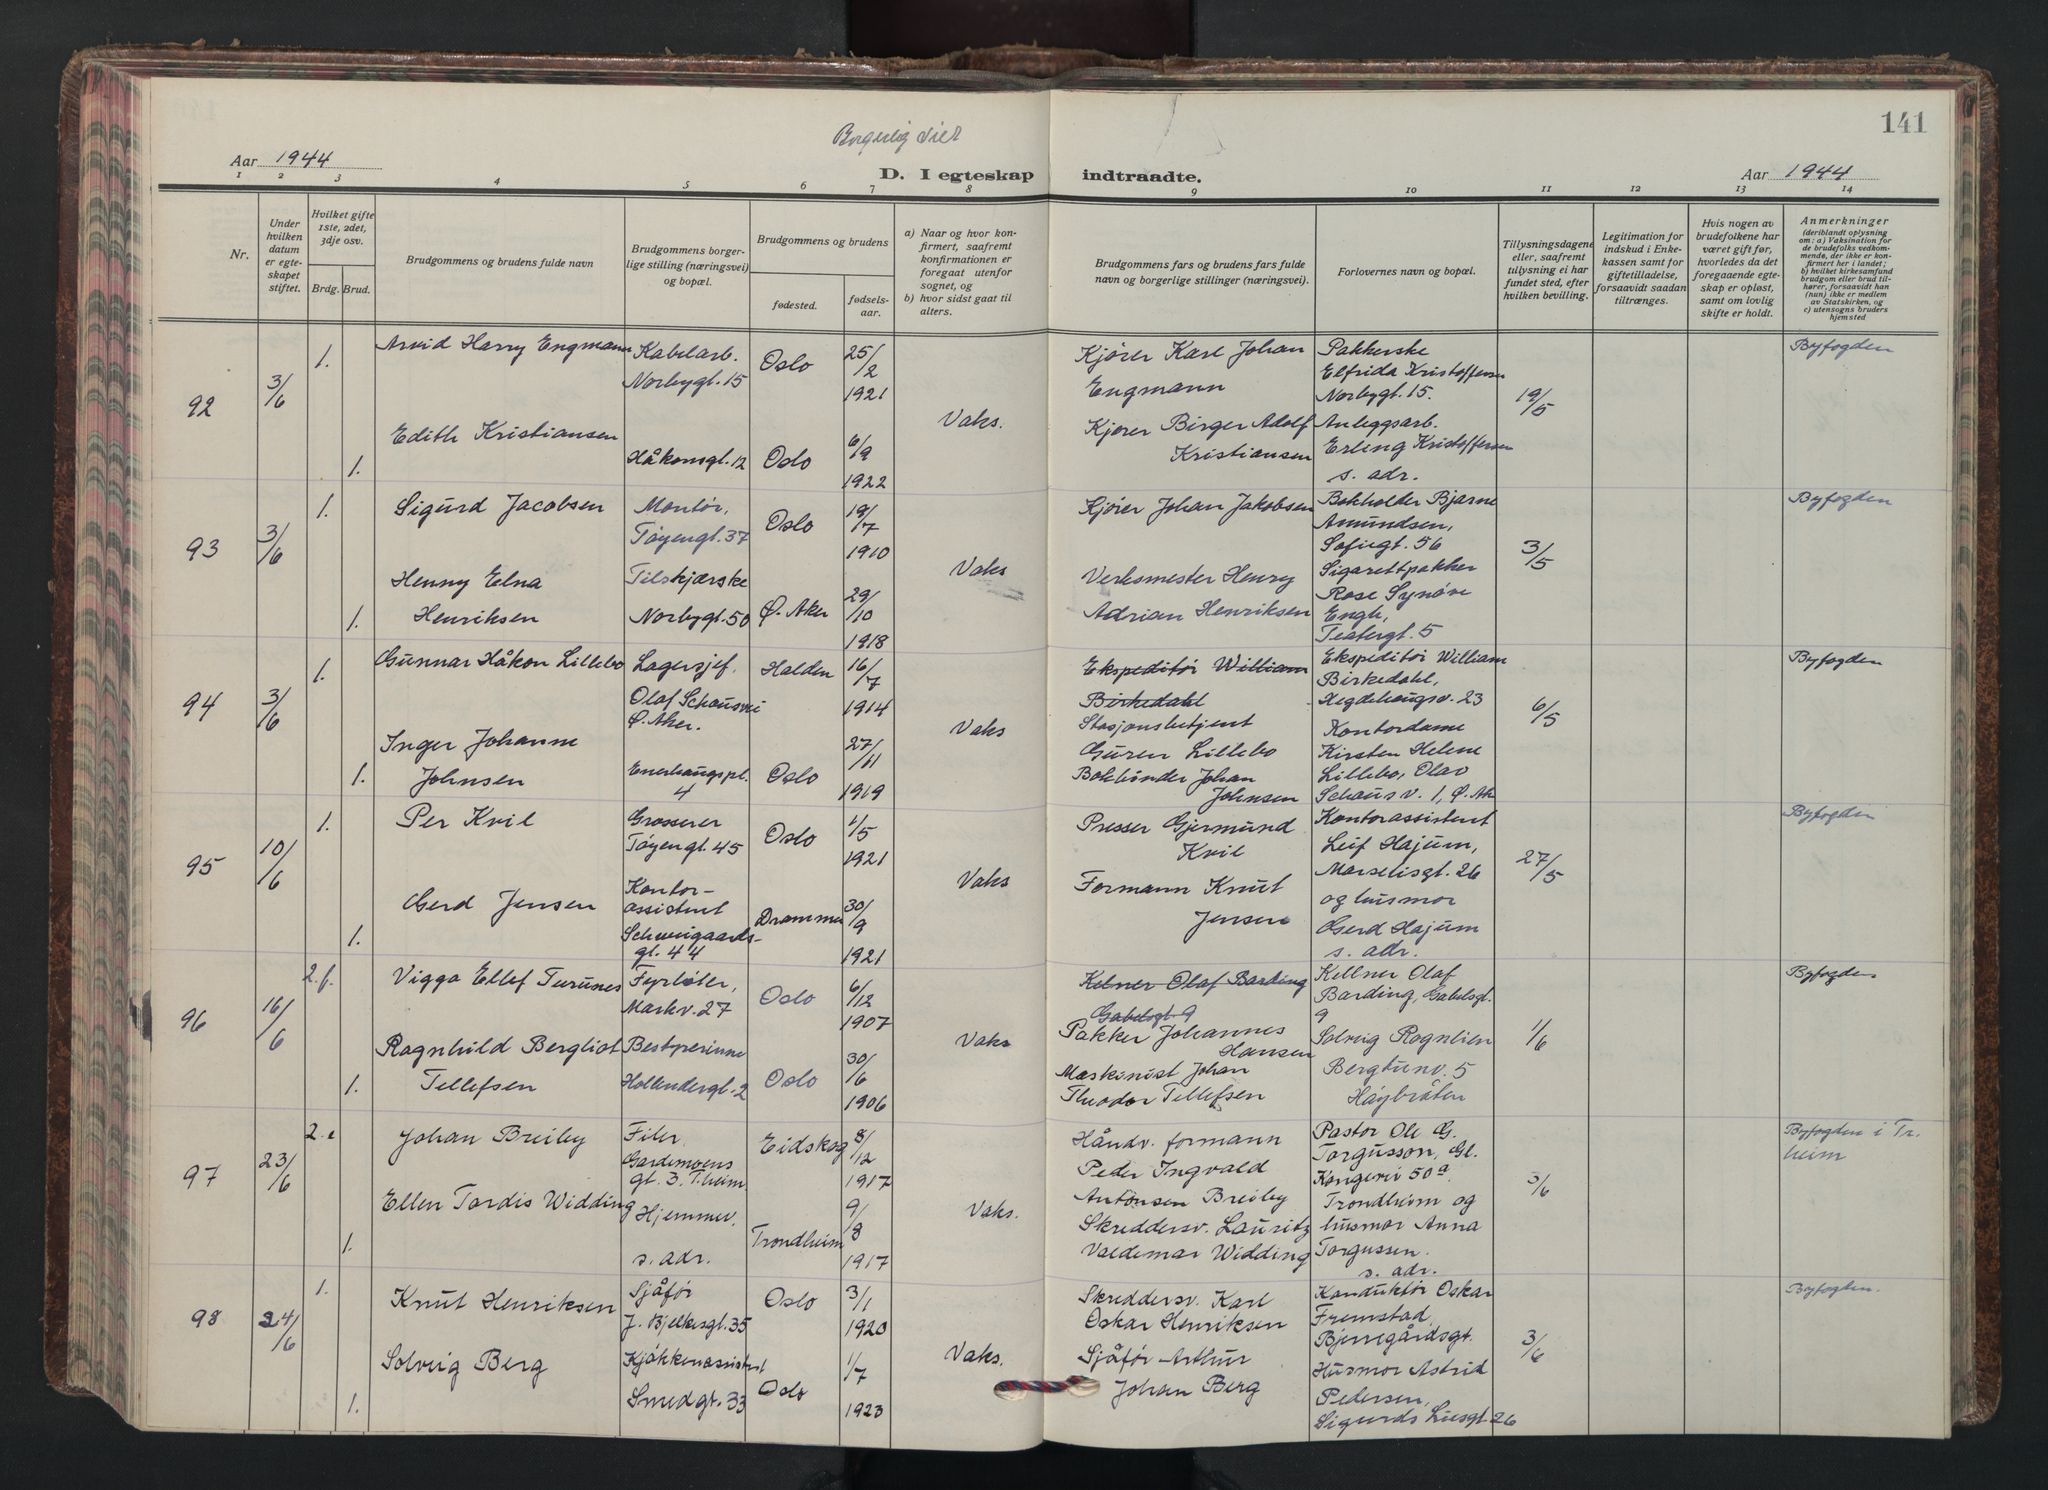 141
Borgerlig viet
Aar 1944
D. I egteskap indtraadte.
Aar 1944
1 2 3 4 5 6 7 8 9 10 11 12 13 14
Nr.
Under hvilken datum er egteskapet stiftet.
Hvilket gifte 1ste, 2det, 3dje osv.
Brdg. Brud.
Brudgommens og brudens fulde navn
Brudgommens borgerlige stilling (næringsvei) og bopæl.
Brudgommens og brudens
fødested.
fødselsaar.
a) Naar og hvor konfirmert, saafremt konfirmationen er foregaat utenfor sognet, og
b) hvor sidst gaat til alters.
Brudgommens fars og brudens fars fulde navn og borgerlige stillinger (næringsvei).
Forlovernes navn og bopæl.
Tillysningsdagene eller, saafremt tullysning ei har fundet sted, efter hvilken bevilling.
Legitimation for indskud i Enkekassen samt for giftetilladelse, forsaavidt saadan tiltrænges.
Hvis nogen av brudefolkene har været gift før, hvorledes da det foregaaende egteskap er opløst, samt om lovlig skifte er holdt.
Anmerkninger
(deriblandt oplysning om: a) Vaksination for de brudefolks vedkommende, der ikke er konfirmert her i landet;
b) hvilket kirkesamfund brudgom eller brud tilhører, forsaavidt han (hun) ikke er medlem av Statskirken, og
c) utensogns bruders hjemsted
92 3/6
1. Arvid Harry Engmann
Kabelarb.
Norbygt. 15
Oslo
25/2 1921
1. Edith Kristiansen
Håkonsgt. 12
Oslo
6/9 1922
Vaks.
Kjører Karl Johan
Engmann
Kjører Birger Adolf
Kristiansen
Pakkerske
Elfrida Kristoffersen
Norbygt. 15.
Anleggsarb.
Erling Kristoffersen
s. adr.
19/5
Byfogden
93 3/6
1. Sigurd Jacobsen
Montør,
Tøyengt. 37
Oslo
19/7 1910
1. Henny Elna
Henriksen
Tilskjærske
Norbygt. 50
Ø. Aker
29/10 1918
Vaks
Kjører Johan Jakobsen
Verksmester Henry
Adrian Henriksen
Bokholder Bjarne
Amundsen,
Sofiegt. 56
Sigarettpakker
Rose Synøve
Engh,
Teatergt. 5
3/5
Byfogden
94 3/6
1. Gunnar Håkon Lillebo
Lagersjef,
Olaf Schousvei
Ø. Aker.
Halden
16/7 1914
1. Inger Johanne
Johnsen
Enerhaugspl.
4
Oslo
27/11 1919
Vaks
Ekspeditør William
Birkedahl
Stasjonsbetjent
Guren Lillebo
Bokbinder Johan
Johnsen
Ekspeditør William
Birkedahl,
Hegdehaugsv. 23
Kontordame
Kirsten Helene
Lillebo, Olav
Schaus v. 1, Ø. Ak
6/5
Byfogden
95 10/6
1. Per Kvil
Grosserer
Tøyengt. 45
Oslo
1/5 1921
1. Gerd Jensen
Kontor-
assistent
Schweigaards-
gt. 44
Drammen
30/9 1921
Vaks
Presser Gjermund
Kvil
Formann Knut
Jensen
Kontorassistent
Leif Hajum,
Marselisgt. 26
og husmor
Gerd Hajum
s. adr.
27/5
Byfogden
96 16/6
2. f. Viggo Ellef Turunes
Fyrbøter,
Markv. 27
Oslo
6/12 1907
1. Ragnhild Bergliot
Tellefsen
Bestyrerinne
Hollendergt. 2
Oslo
30/6 1906
Vaks
Kelner Olaf Barding
Gabelsgt. 9
Pakker Johannes
Hansen
Maskinist Johan
Theodor Tellefsen
Kellner Olaf
Barding, Gabelsgt.
9
Solveig Rognlien
Bergtunv. 5
Høybråten
1/6
Byfogden
97 23/6
2. Johan Breiby
Filer,
Gardemoens
gt. 3. T.heim
Eidskog
8/12 1917
1. Ellen Tordis Widding
Hjemmev.
s. adr.
Trondheim
9/8 1917
Vaks.
Håndv. formann
Peder Ingvald
Antonsen Breiby
Skreddersv. Lauritz
Valdemar Widding
Pastor Ole G.
Torgusson, Gl.
Kongevei 50a
Trondheim og
husmor Anna
Torgussen.
s. adr.
3/6
Byfogden i Tr.
heim
98 24/6
1. Knut Henriksen
Sjåfør
J. Bjelkesgt. 35
Oslo
3/1 1920
1. Solveig Berg
Kjøkkenassistent
Smedgt. 33
Oslo
1/7 1923
Vaks.
Skreddersv. Karl
Oskar Henriksen
Sjåfør Arthur
Johan Berg
Konduktør Oskar
Fremstad,
Bjerregårdsgt.
Husmor Astrid
Pedersen,
Sigurds Liesgt 26
3/6
Byfogden.